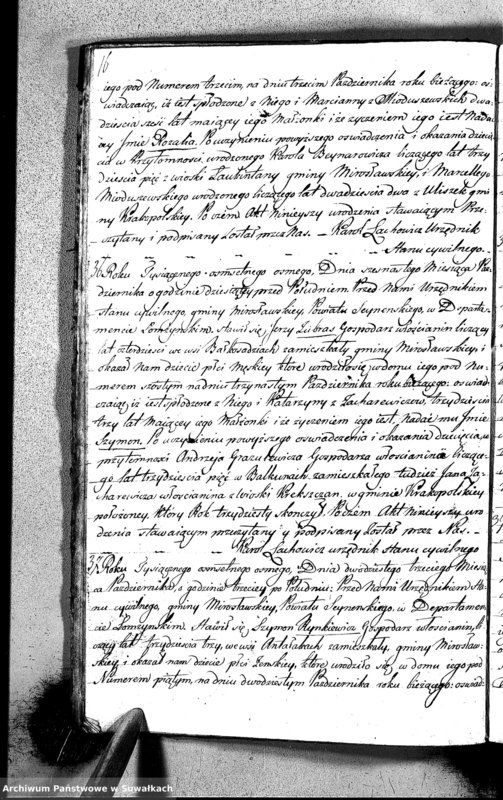 16
iego pod Numerem trzecim, na dniu trzecim Października roku bieżącego: oś-
wiadczając, iż iest spłodzone z Niego i Maryanny z Modzuszewskich dwa-
dzieścia sześć lat maiącey iego Małżonki iż życzeniem iego iest Nadać
iey Jmie Rozalia. Po uczynieniu powyższego oświadczenia i okazania dziecię-
cia w Przytomności urodzonego Karola Beynarowicza liczącego lat trzy
dzieścia pięć z wioski gminy Mirosławskiey, i Marcellego
urodzonego liczącego lat dwadzieścia dwa z gmi-
ny Krakopolskiey. Po czem Akt Ninieyszy urodzenia stawaiącym Prze-
czytany i podpisany został przez Nas. – Karol Lachowicz Urzędnik
Stanu cywilnego.
36 Roku Tysiącznego osmsetnego osmego, Dnia szesnastego Miesiąca Paź-
dziernika o godzinie dziesiątey przed Południem Przed Nami Urzędnikiem
stanu cywilnego gminy mirosławskiey, Powiatu Seynenskiego, w Departa-
mencie Łomżyńskim. stawił się, Jerzy Lubras Gospodarz włościanin liczący
lat czterdzieści we wsi Bałkosadziach zamieszkały gminy Mirosławskiey, i
okazał Nam dziecie płci Męskiey które urodziło się w domu iego pod Nu-
merem szostym na dniu trzynastym Października roku bieżącego: oświad-
czaiąc iż iest spłodzone z Niego i Katarzyny z Zacharewiczow, trzydzieści
trzy lat Maiącey iego Małżonki i iż życzeniem iego iest, nadać mu Jmie
Szymon. Po uczynieniu powyższego oświadczenia i okazania dziecięcia w
przytomności Andrzeja Grazulewicza Gospodarza włościanina liczące-
go lat trzydzieścia pięć w Balkunach zamieszkałego tudzież Jana Za-
charewicza włościanina z wioski Krekszczan, w gminie Krakopolskiey
położoney, który Rok trzydziesty skończył. Poczem Akt Ninieyszy uro-
dzenia stawaiącym przeczytany y podpisany został przez Nas. –
Karol Lachowicz urzędnik stanu cywilnego
37 Roku Tysiącznego osmsetnego osmego, Dnia dwudziestego trzeciego Miesią-
ca Października, o godzinie trzeciey po Południu: Przed Nami Urzędnikiem Sta-
nu cywilnego, gminy Mirosławskiey, Powiatu Seynenskiego, w Departamen-
cie Łomżyńskim. Stawił się, Szymon Rynkiewicz Gospodarz włościanin, li-
czący lat trzydzieścia trzy, we wsi Antałabach zamieszkały, gminy Mirosław-
skiey, i okazał nam dziecie płci Żenskiey, które urodziło się w domu iego pod
Numerem piątym, na dniu dwudziestym Października roku bieżącego: oświad-
Archiwum Państwowe w Suwałkach